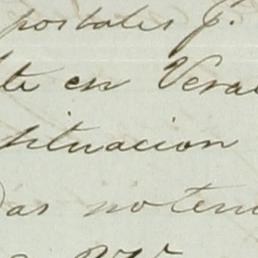 postales p.
te en Vera
situacion
Das no ten